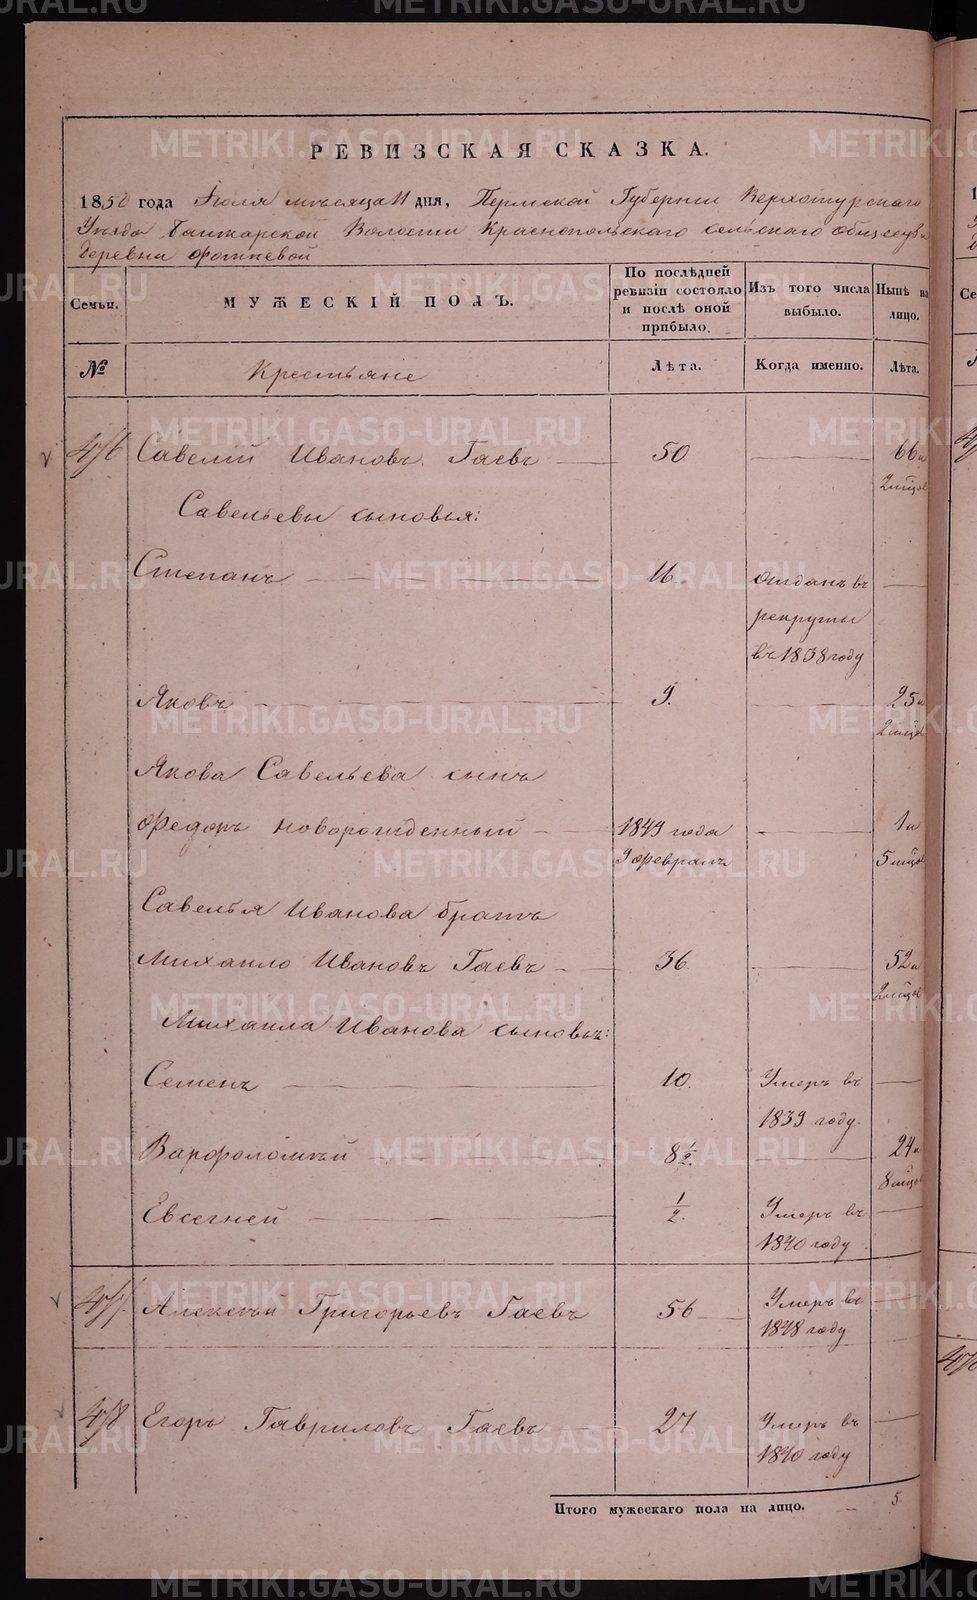 METRIKI.GASO-URAL.RU
РЕВИЗСКАЯ СКАЗКА.
1850 года Июля мѣсяца 11 дня, Пермской Губерніи Верхотурскаго
Уѣзда Башкарской Волости Краснопольскаго сельскаго общества
деревни Фотѣевой
Семьи. МУЖЕСКІЙ ПОЛЪ. По послѣдней ревизіи состояло и послѣ оной прибыло. Изъ того числа выбыло. Нынѣ на лицо.
№ Крестьяне Лѣта. Когда именно. Лѣта.
4/6 Савелій Ивановъ Гаевъ 50 66 и
2 мѣсяц
Савельевы сыновья:
Степанъ 16. Отданъ въ
рекруты
въ 1838 году
Яковъ 9. 25 и
2 мѣсяц
Якова Савельева сынъ
Федоръ новорожденный 1849 года 1 и
9 Февраля 5 мѣсяц
Савелья Иванова братъ
Михаило Ивановъ Гаевъ 36. 52 и
2 мѣсяц
Михаила Иванова сыновья:
Семенъ 10. Умеръ въ
1839 году.
Варфоломѣй 8½. 24 и
8 мѣсяц
Евсегней ½. Умеръ въ
1840 году
4/7. Алексѣй Григорьевъ Гаевъ 56 Умеръ въ
1848 году
4/8 Егоръ Гавриловъ Гаевъ 27 Умеръ въ
1840 году
Итого мужескаго пола на лицо. 5.